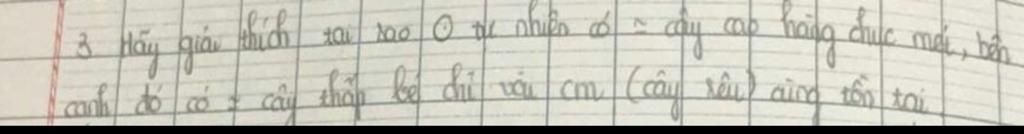 3 Hãy giải thích tại sao O tự nhiên có = cây cao hàng chục mét, bên
cạnh đó có cây thấp bé chỉ vài cm (cây rêu) cùng tồn tại